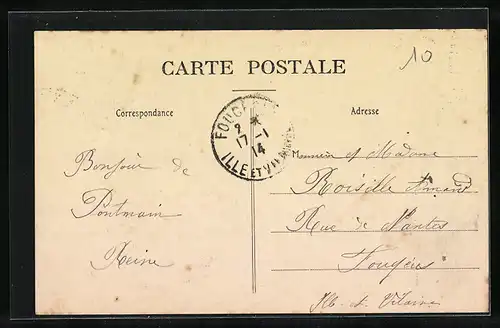 10
CARTE POSTALE
Correspondance
Adresse
FOUGÈRES
2 *
17-1
14
ILLE ET VILAINE
Bonjour de
Pontmain
Reine
Monsieur et Madame
Roisille Amand
Rue de Nantes
Fougères
Ille-et-Vilaine